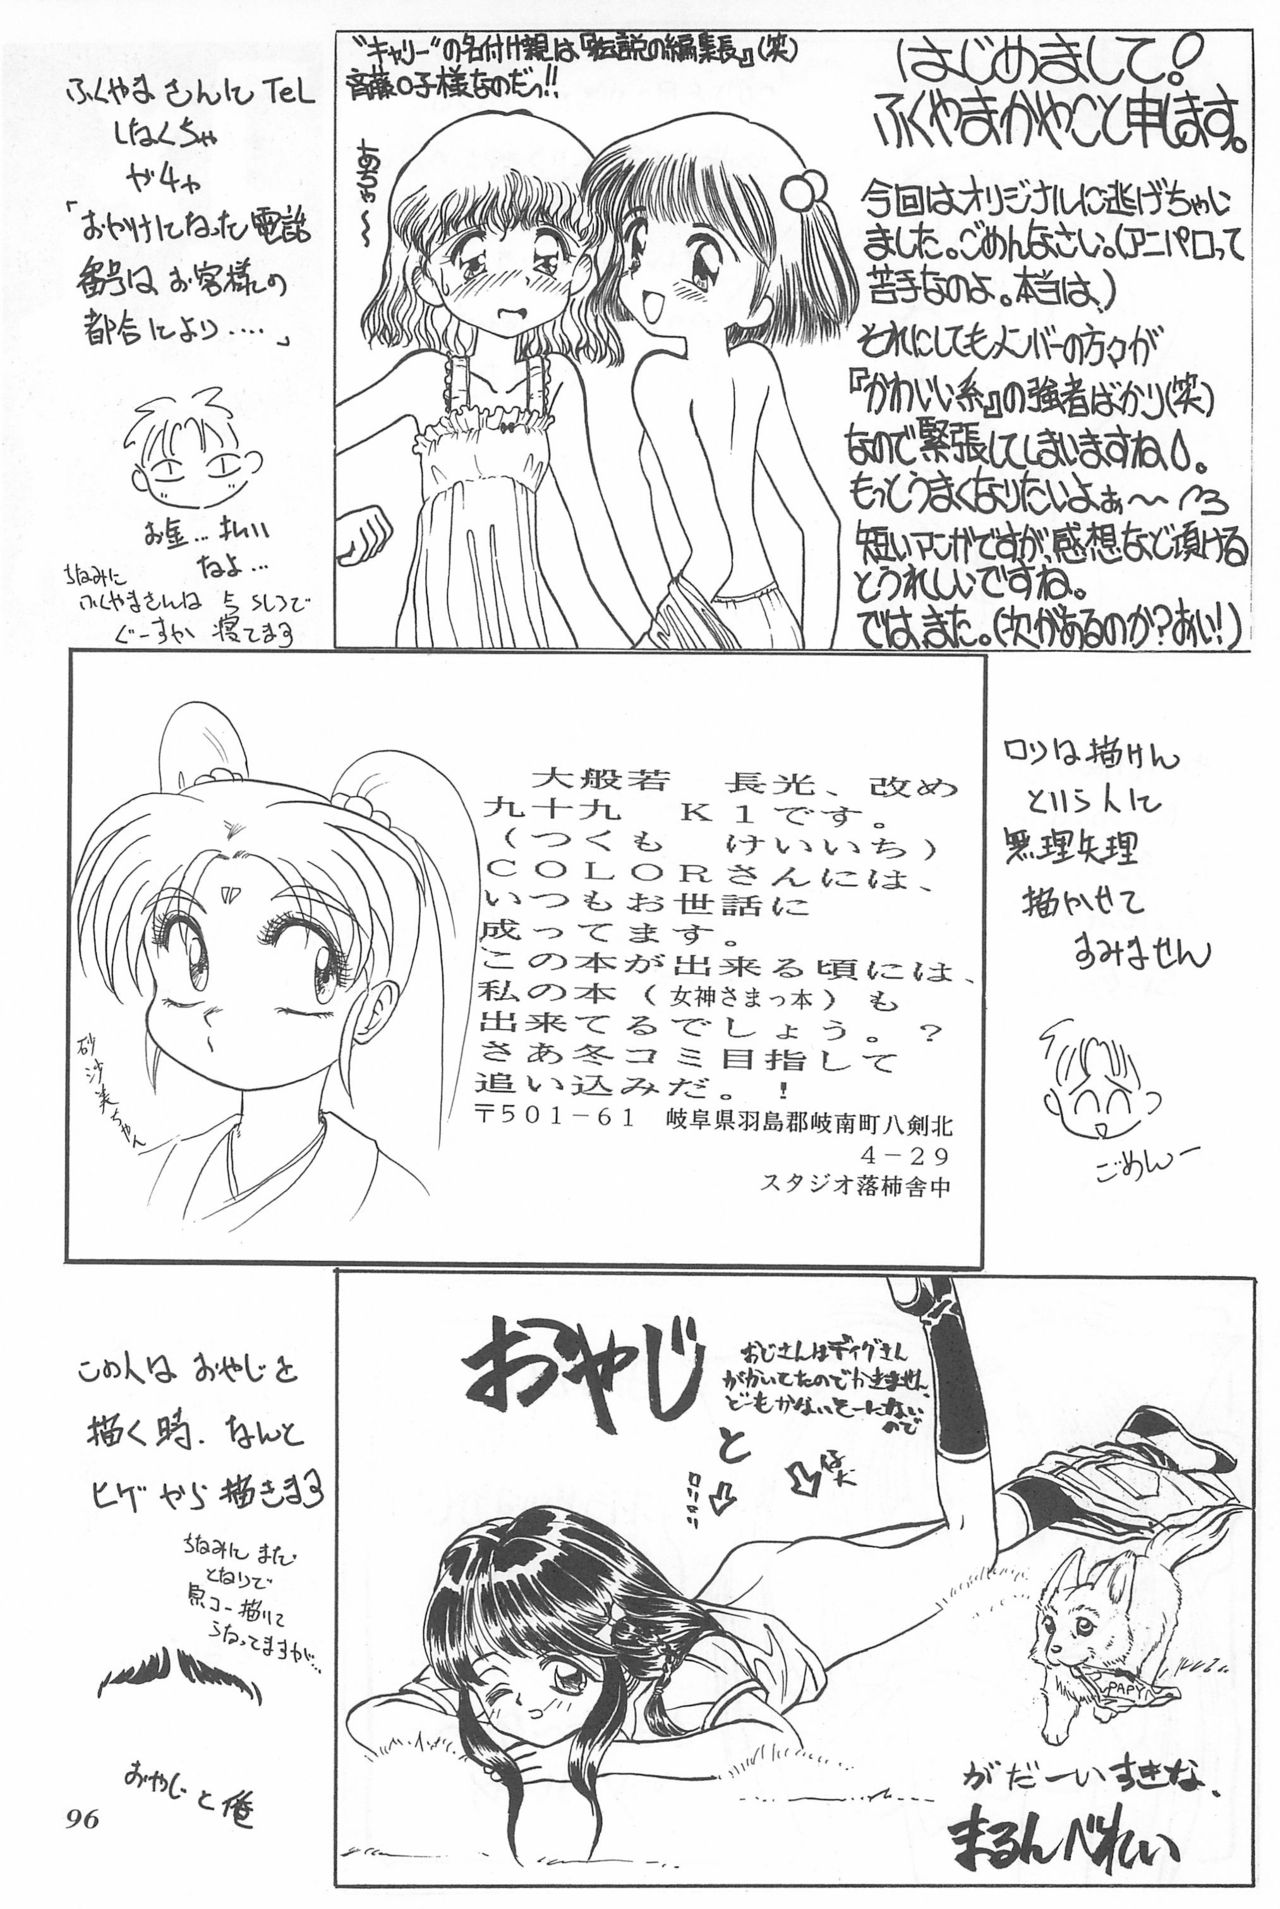 "キャリー"の名付け親は『伝説の編集長』(笑)
斉藤O子様なのだっ!!
あちゃ〜
はじめまして!
ふくやまかやこと申します。
今回はオリジナルに逃げちゃい
ました。ごめんなさい。(アニパロって
苦手なのよ。本当は、)
それにしてもメンバーの方々が
『かわいい系』の強者ばかり(笑)
なので緊張してしまいますね。
もっとうまくなりたいよぉ〜
短いマンガですが、感想など頂ける
とうれしいですね。
では、また。(次があるのか?あい!)
ふくやまさんにTeL
しなくちゃ
ガチャ
「おかけになった電話
番号はお客様の
都合により‥‥」
お金…払い
なよ…
ちなみに
ふくやまさんは うしろで
ぐーすか 寝てます
大般若 長光、改め
九十九 K1です。
(つくも けいいち)
COLORさんには、
いつもお世話に
成ってます。
この本が出来る頃には、
私の本(女神さまっ本)も
出来てるでしょう。?
さあ冬コミ目指して
追い込みだ。!
〒501-61 岐阜県羽島郡岐南町八剣北
4-29
スタジオ落柿舎中
砂沙美ちゃん
ロリは描けん
という人に
無理矢理
描かせて
すみません
ごめんー
おやじ
と
おじさんはディグさん
がかいてたのでかきません
どーもかないそーにない
ので
ロリに
PAPY
がだーいすきな、
まるんべれい
この人は おやじを
描く時、なんと
ヒゲから描きます
ちなみに まだ
となりで
原コー描いて
うなってますが…
おやじと俺
96